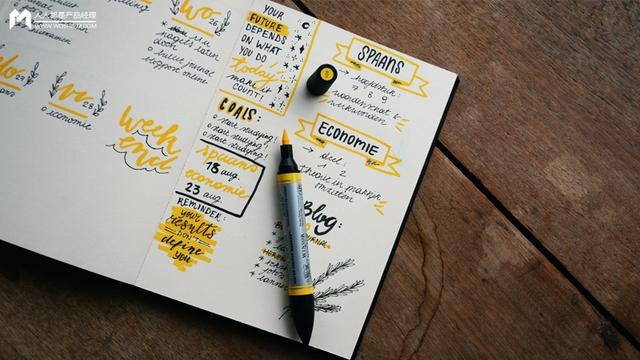 人人都是产品经理
WOSHIPM.COM
Wo
26
nagels laten
doen
o bullet journal
shoppen online
Vr
28
o economie
29
Week
end
YOUR
FUTURE
DEPENDS
ON WHAT
YOU DO
today!
make it
COUNT!
GOALS:
o start studying!
o start studying!
o start studying!
spaans
18 aug.
economie
23 aug.
REMINDER:
your
results
DON'T
define
you
SPAANS
→ hoofdstuk:
7 8 9
woordenschat &
werkwoorden
ECONOMIE
→ deel:
1 2
theorie in mapje
invullen
Blog: